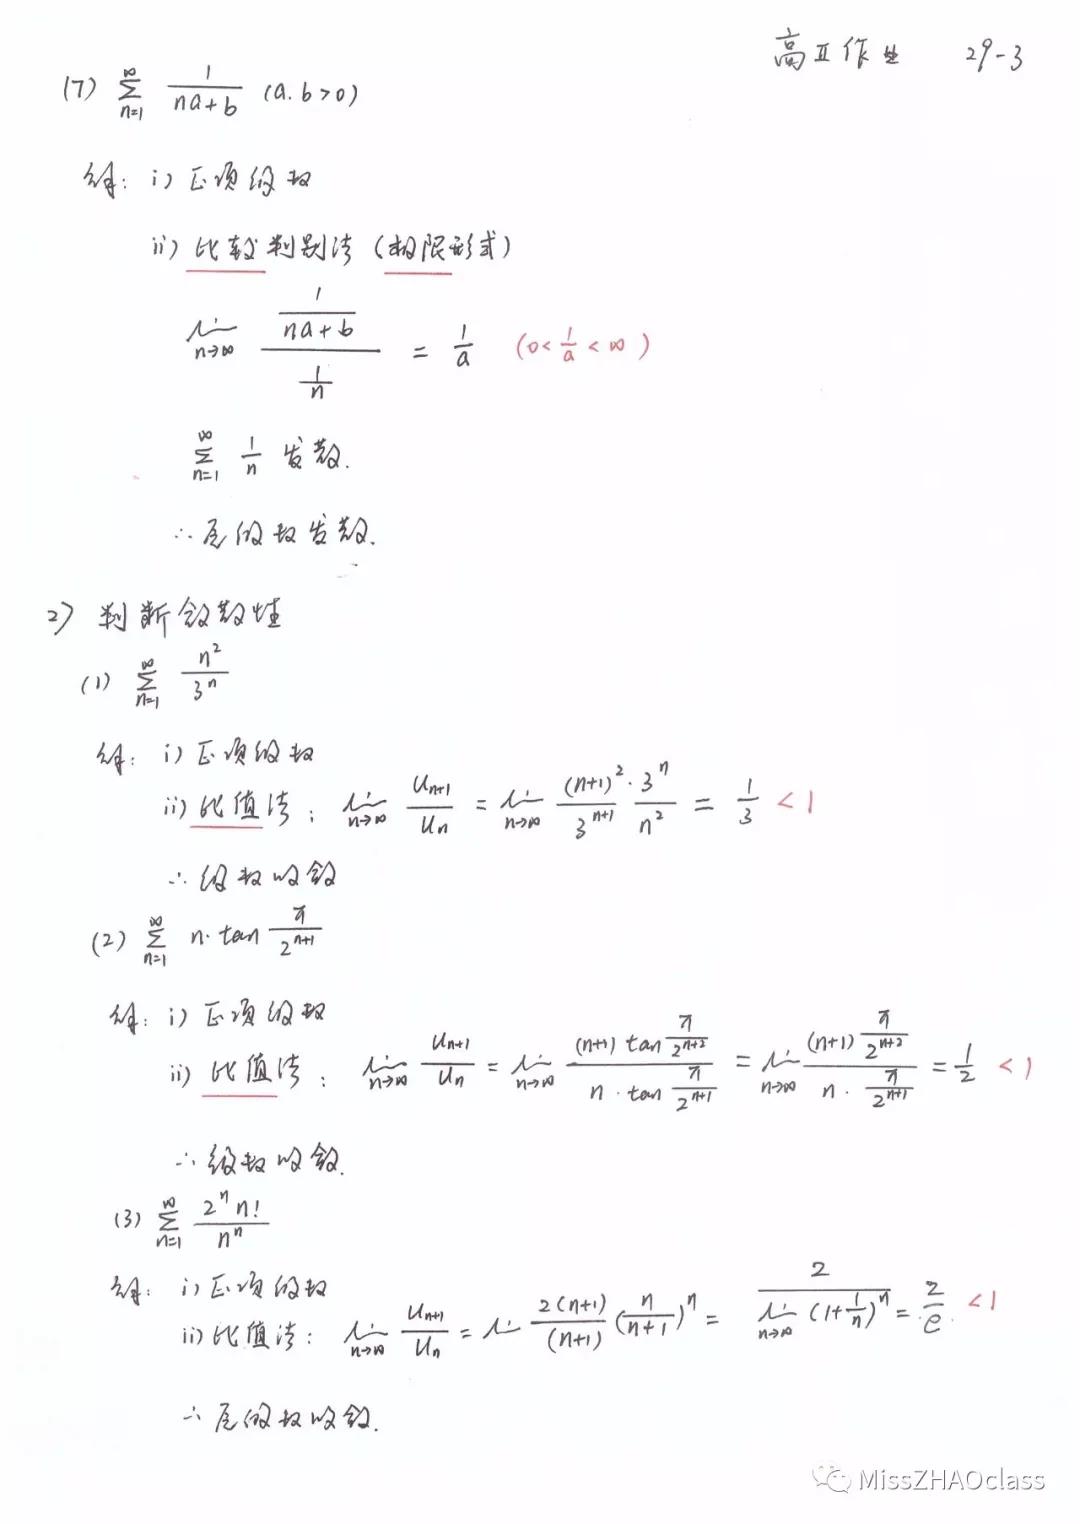 高II作业 29-3
(7) ∑_{n=1}^{∞} 1/(na+b) (a.b>0)
解: i) 正项级数
ii) 比较判别法 (极限形式)
lim_{n→∞} (1/(na+b))/(1/n) = 1/a (0<1/a<∞)
∑_{n=1}^{∞} 1/n 发散.
∴ 原级数发散.
2) 判断敛散性
(1) ∑_{n=1}^{∞} n²/3ⁿ
解: i) 正项级数
ii) 比值法: lim_{n→∞} U_{n+1}/U_n = lim_{n→∞} (n+1)²/3^{n+1} · 3ⁿ/n² = 1/3 <1
∴ 级数收敛
(2) ∑_{n=1}^{∞} n·tan π/2^{n+1}
解: i) 正项级数
ii) 比值法: lim_{n→∞} U_{n+1}/U_n = lim_{n→∞} ((n+1) tan π/2^{n+2})/(n·tan π/2^{n+1}) = lim_{n→∞} ((n+1) π/2^{n+2})/(n·π/2^{n+1}) = 1/2 <1
∴ 级数收敛.
(3) ∑_{n=1}^{∞} 2ⁿn!/nⁿ
解: i) 正项级数
ii) 比值法: lim_{n→∞} U_{n+1}/U_n = lim 2(n+1)/(n+1) (n/(n+1))ⁿ = 2/(lim_{n→∞} (1+1/n)ⁿ) = 2/e <1
∴ 原级数收敛.
MissZHAOclass